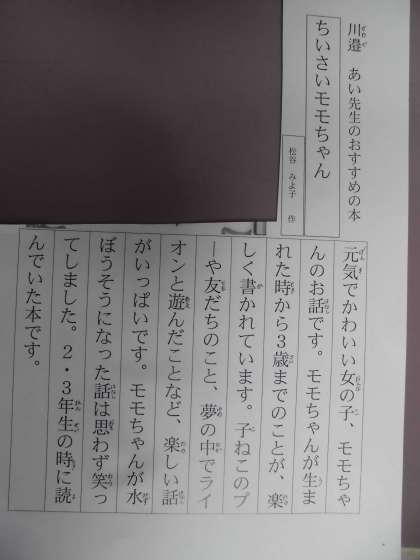 川邉　あい先生のおすすめの本
ちいさいモモちゃん
松谷　みよ子　作
元気でかわいい女の子、モモちゃ
んのお話です。モモちゃんが生ま
れた時から3歳までのことが、楽
しく書かれています。子ねこのプ
ーや友だちのこと、夢の中でライ
オンと遊んだことなど、楽しい話
がいっぱいです。モモちゃんが水
ぼうそうになった話は思わず笑っ
てしました。2・3年生の時に読
んでいた本です。